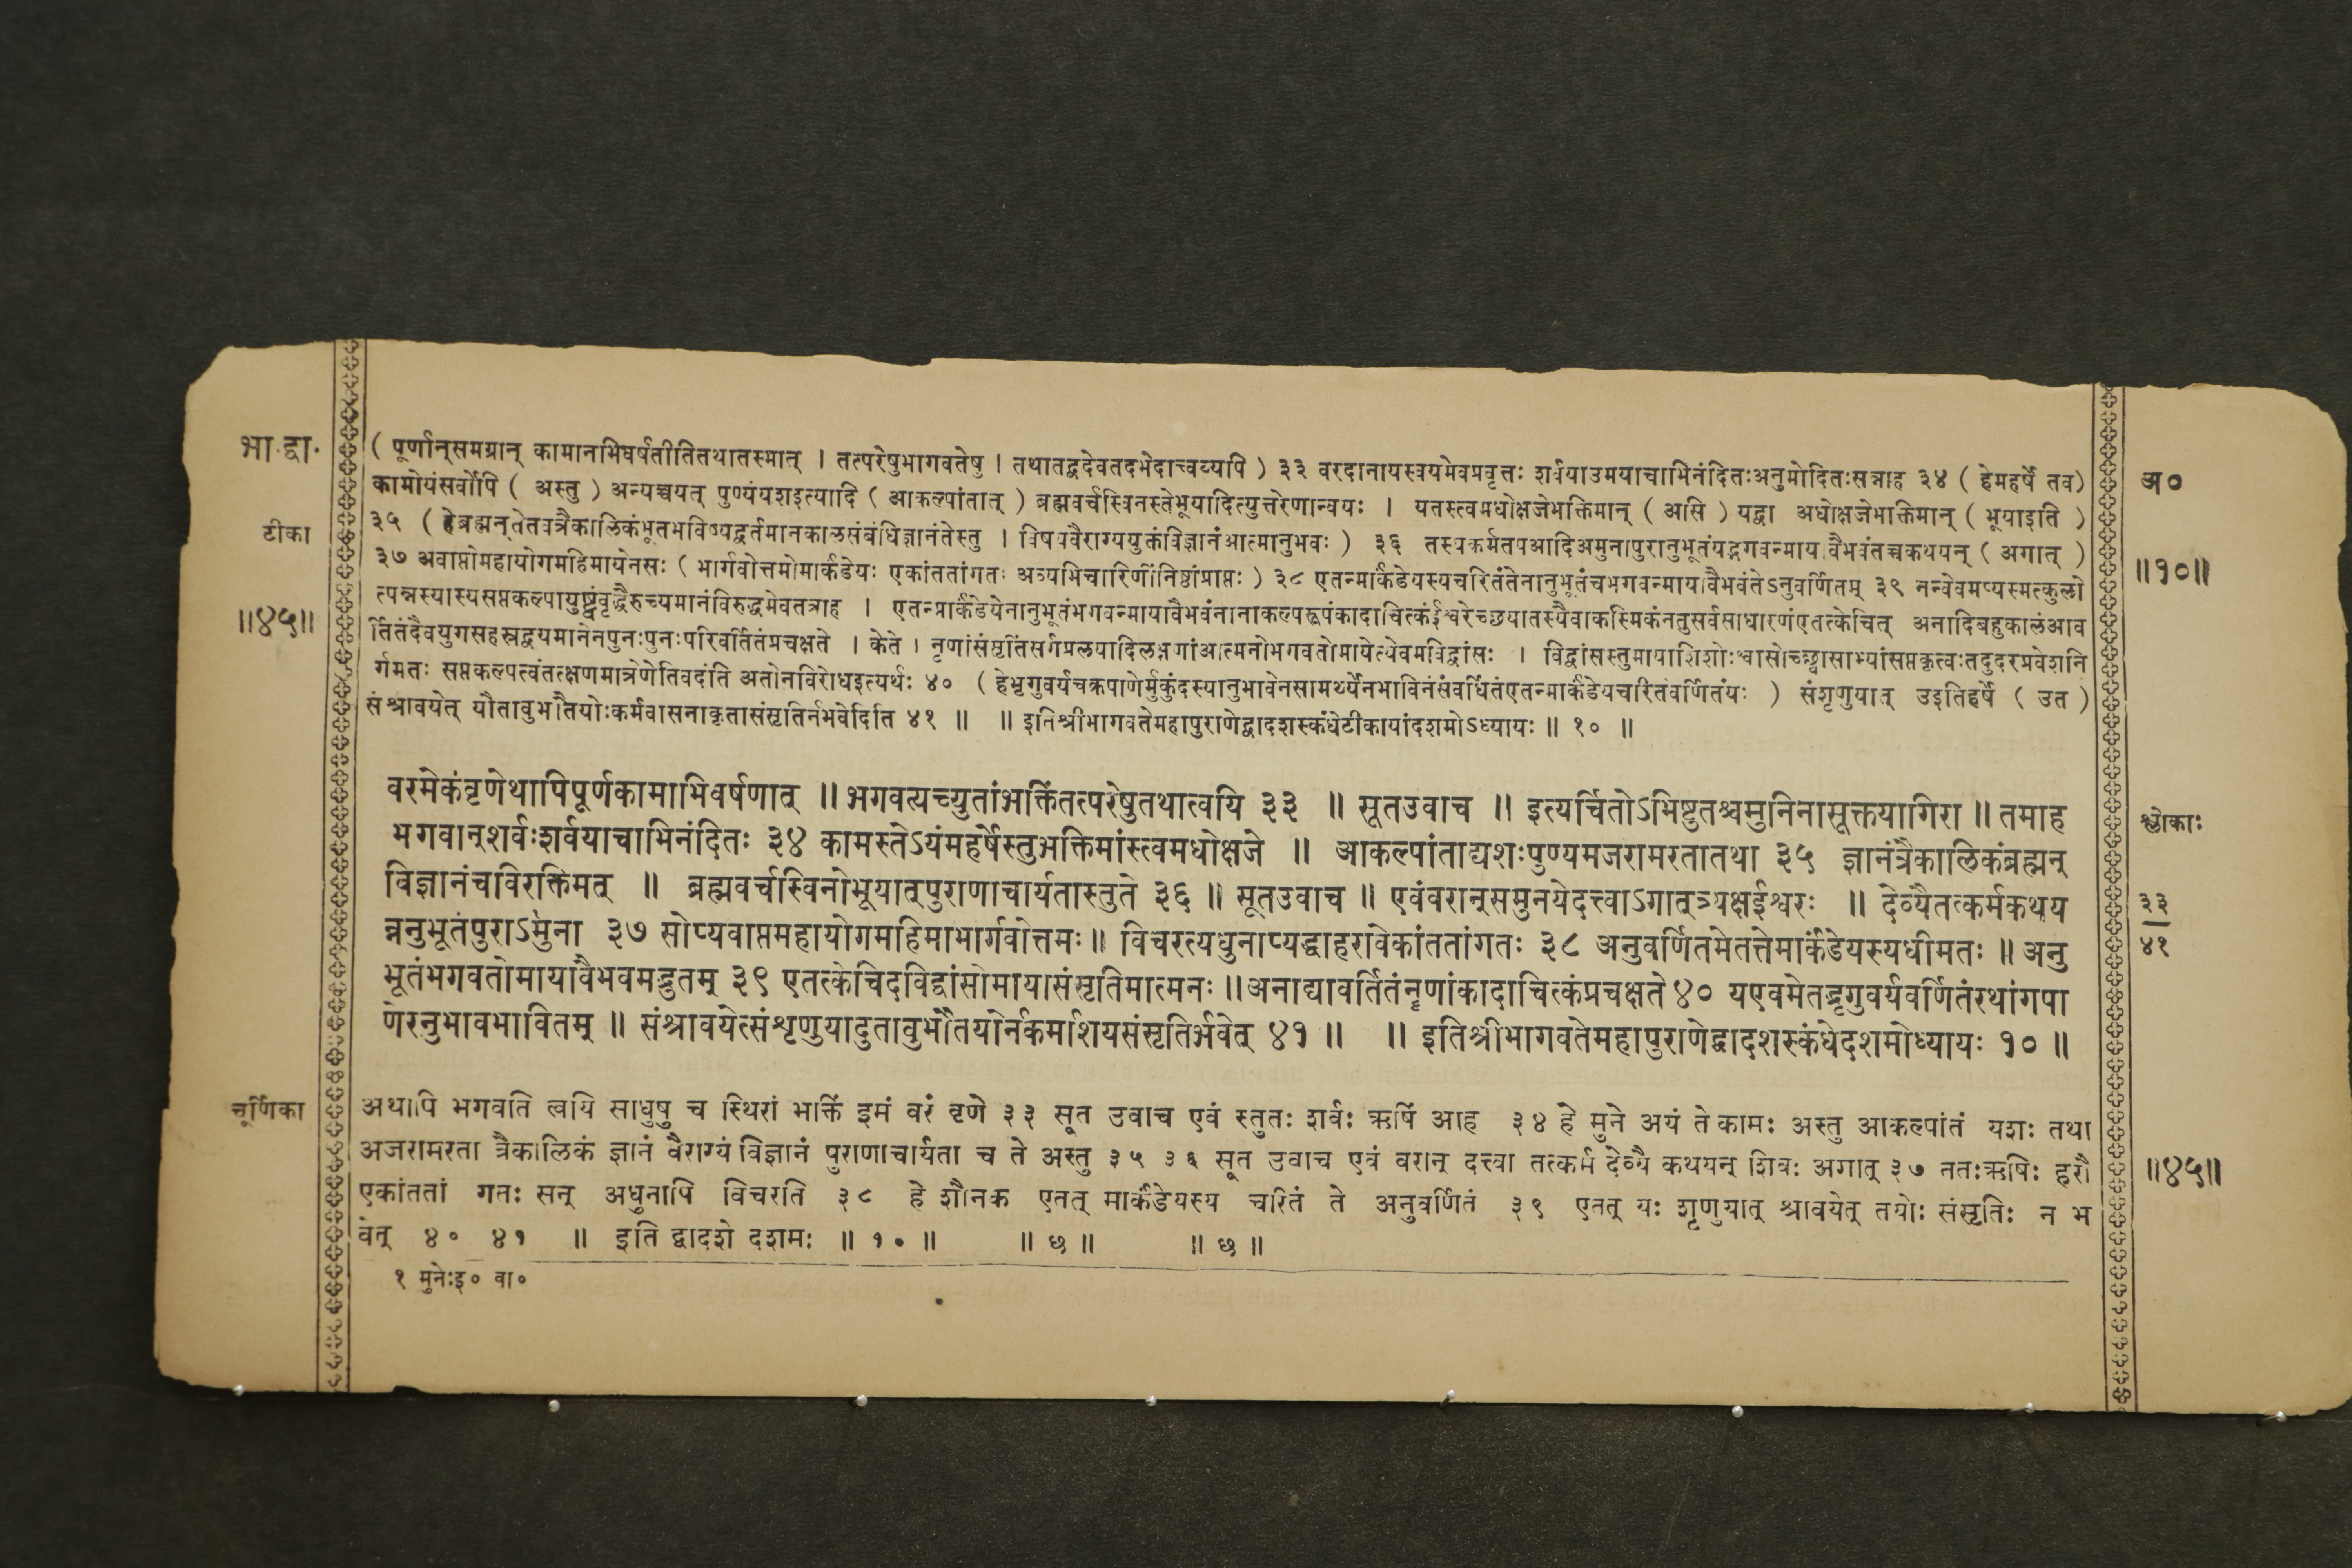 भा.द्वा.
टीका
॥४५॥
( पूर्णान्समग्रान् कामानभिवर्षतीतितथातस्मात् । तत्परेषुभागवतेषु । तथातद्वदेवतदभेदात्त्वय्यपि ) ३३ वरदानायस्वयमेवप्रवृत्तः शर्वयाउमयाचाभिनंदितःअनुमोदितःसन्नाह ३४ ( हेमहर्षे तव)
कामोयंसर्वोपि ( अस्तु ) अन्यच्चयत् पुण्यंयशइत्यादि ( आकल्पांतात् ) ब्रह्मवर्चस्विनस्तेभूयादित्युत्तरेणान्वयः । यतस्त्वमधोक्षजेभक्तिमान् ( असि ) यद्वा अधोक्षजेभक्तिमान् ( भूयाइति )
३५ ( हेब्रह्मन्तेतवत्रैकालिकंभूतभविष्यद्वर्तमानकालसंबंधिज्ञानंतेस्तु । विषयवैराग्ययुक्तंविज्ञानंआत्मानुभवः ) ३६ तस्यकर्मतपआदिअमुनापुरानुभूतंयद्भगवन्मायावैभवंतच्चकथयन् ( अगात् )
३७ अवाप्तोमहायोगमहिमायेनसः ( भार्गवोत्तमोमार्कंडेयः एकांततांगतः अव्यभिचारिणींनिष्ठांप्राप्तः ) ३८ एतन्मार्कंडेयस्यचरितंतेनानुभूतंचभगवन्मायावैभवंतेऽनुवर्णितम् ३९ नन्वेवमप्यस्मत्कुलो
त्पन्नस्यास्यसप्तकल्पायुष्ट्वंवृद्धैरुच्यमानंविरुद्धमेवतत्राह । एतन्मार्कंडेयेनानुभूतंभगवन्मायावैभवंनानाकल्परूपंकादाचित्कंईश्वरेच्छयातस्यैवाकस्मिकंनतुसर्वसाधारणंएतत्केचित् अनादिबहुकालंआव
र्तितंदैवयुगसहस्रद्वयमानेनपुनःपुनःपरिवर्तितंप्रचक्षते । केते । नृणांसंसृतिंसर्गप्रलयादिलक्षणांआत्मनोभगवतोमायेत्येवमविद्वांसः । विद्वांसस्तुमायाशिशोःश्वासोच्छ्वासाभ्यांसप्तकृत्वःतदुदरप्रवेशनि
र्गमतः सप्तकल्पत्वंतत्क्षणमात्रेणेतिवदंति अतोनविरोधइत्यर्थः ४० ( हेभृगुवर्यचक्रपाणेर्मुकुंदस्यानुभावेनसामर्थ्येनभावितंसंवर्धितंएतन्मार्कंडेयचरितंवर्णितंयः ) संशृणुयात् उइतिहर्षे ( उत )
संश्रावयेत् यौतावुभौतयोःकर्मवासनाकृतासंसृतिर्नभवेदिति ४१ ॥ ॥ इतिश्रीभागवतेमहापुराणेद्वादशस्कंधेटीकायांदशमोऽध्यायः ॥ १० ॥
अ०
॥१०॥
वरमेकंवृणेथापिपूर्णकामाभिवर्षणात् ॥ भगवत्यच्युतांभक्तिंतत्परेषुतथात्वयि ३३ ॥ सूतउवाच ॥ इत्यर्चितोऽभिष्टुतश्चमुनिनासूक्तयागिरा ॥ तमाह
भगवान्शर्वःशर्वयाचाभिनंदितः ३४ कामस्तेऽयंमहर्षेस्तुभक्तिमांस्त्वमधोक्षजे ॥ आकल्पांताद्यशःपुण्यमजरामरतातथा ३५ ज्ञानंत्रैकालिकंब्रह्मन्
विज्ञानंचविरक्तिमत् ॥ ब्रह्मवर्चस्विनोभूयात्पुराणाचार्यतास्तुते ३६ ॥ सूतउवाच ॥ एवंवरान्समुनयेदत्त्वाऽगात्त्र्यक्षईश्वरः ॥ देव्यैतत्कर्मकथय
न्ननुभूतंपुराऽमुना ३७ सोप्यवाप्तमहायोगमहिमाभार्गवोत्तमः॥ विचरत्यधुनाप्यद्धाहरावेकांततांगतः ३८ अनुवर्णितमेतत्तेमार्कंडेयस्यधीमतः ॥ अनु
भूतंभगवतोमायावैभवमद्भुतम् ३९ एतत्केचिदविद्वांसोमायासंसृतिमात्मनः ॥अनाद्यावर्तितंनॄणांकादाचित्कंप्रचक्षते ४० यएवमेतद्भृगुवर्यवर्णितंरथांगपा
णेरनुभावभावितम् ॥ संश्रावयेत्संशृणुयादुतावुभौतयोर्नकर्माशयसंसृतिर्भवेत् ४१ ॥ ॥ इतिश्रीभागवतेमहापुराणेद्वादशस्कंधेदशमोध्यायः १० ॥
श्लोकाः
३३
४१
चूर्णिका
अथापि भगवति त्वयि साधुषु च स्थिरां भक्तिं इमं वरं वृणे ३३ सूत उवाच एवं स्तुतः शर्वः ऋषिं आह ३४ हे मुने अयं ते कामः अस्तु आकल्पांतं यशः तथा
अजरामरता त्रैकालिकं ज्ञानं वैराग्यं विज्ञानं पुराणाचार्यता च ते अस्तु ३५ ३६ सूत उवाच एवं वरान् दत्त्वा तत्कर्म देव्यै कथयन् शिवः अगात् ३७ ततःऋषिः हरौ
एकांततां गतः सन् अधुनापि विचरति ३८ हे शौनक एतत् मार्कंडेयस्य चरितं ते अनुवर्णितं ३९ एतत् यः शृणुयात् श्रावयेत् तयोः संसृतिः न भ
वेत् ४० ४१ ॥ इति द्वादशे दशमः ॥ १० ॥ ॥ छ ॥ ॥ छ ॥
॥४५॥
१ मुनेःइ० वा०